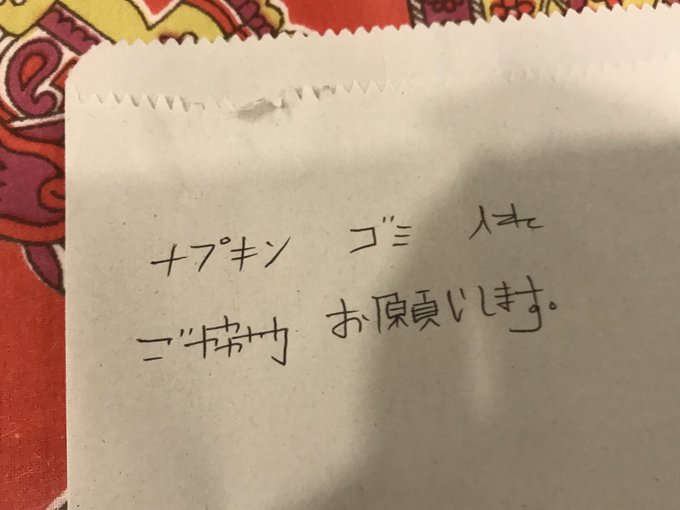 ナプキン ゴミ 入れ
ご協力 お願いします。